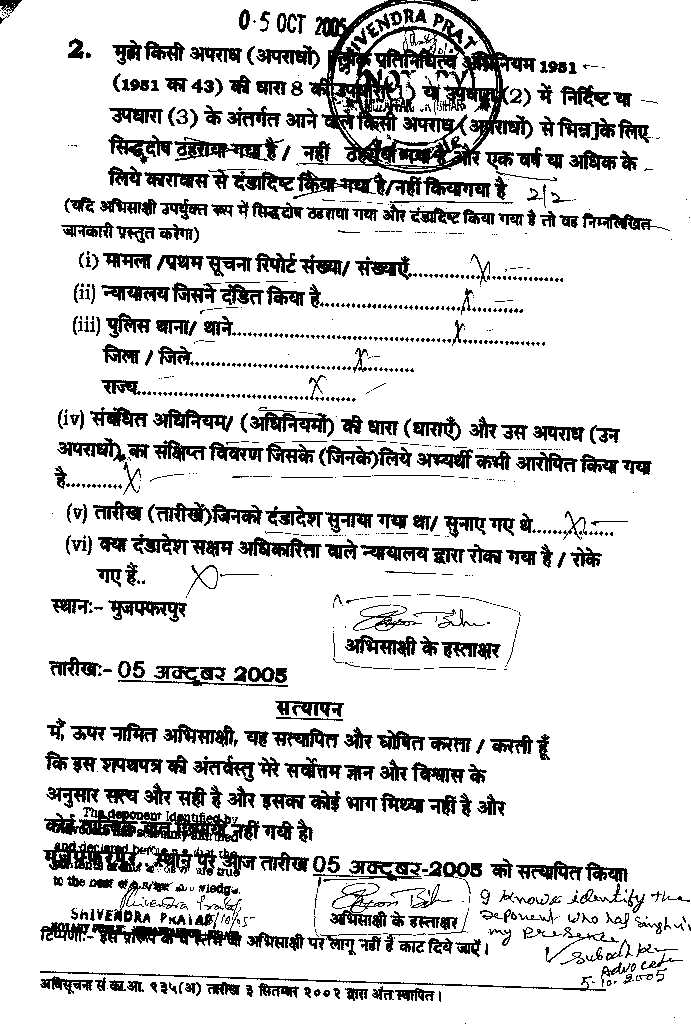 0 5 OCT 2005
SHIVENDRA PRAT
2. मुझे किसी अपराध (अपराधों) प्रतिनिधित्व अधिनियम 1951
(1951 का 43) की धारा 8 की उपधारा (1) या उपधारा (2) में निर्दिष्ट या
उपधारा (3) के अंतर्गत आने वाले किसी अपराध (अपराधों) से भिन्न] के लिए
सिद्धदोष ठहराया गया है / नहीं ठहराया गया है और एक वर्ष या अधिक के
लिये कारावास से दंडादिष्ट किया गया है/नहीं कियागया है
(यदि अभिसाक्षी उपर्युक्त रूप में सिद्धदोष ठहराया गया और दंडादिष्ट किया गया है तो वह निम्नलिखित
जानकारी प्रस्तुत करेगा)
(i) मामला /प्रथम सूचना रिपोर्ट संख्या/ संख्याएँ..........X..........
(ii) न्यायालय जिसने दंडित किया है..........X..........
(iii) पुलिस थाना/ थाने..........X..........
जिला / जिले..........X..........
राज्य..........X..........
(iv) संबंधित अधिनियम/ (अधिनियमों) की धारा (धाराएँ) और उस अपराध (उन
अपराधों) का संक्षिप्त विवरण जिसके (जिनके)लिये अभ्यर्थी कभी आरोपित किया गया
है...........X
(v) तारीख (तारीखें)जिनको दंडादेश सुनाया गया था/ सुनाए गए थे.......X.....
(vi) क्या दंडादेश सक्षम अधिकारिता वाले न्यायालय द्वारा रोका गया है / रोके
गए हैं.. X
स्थानः- मुजफ्फरपुर
अभिसाक्षी के हस्ताक्षर
तारीखः- 05 अक्टूबर 2005
सत्यापन
मैं, ऊपर नामित अभिसाक्षी, यह सत्यापित और घोषित करता / करती हूँ
कि इस शपथपत्र की अंतर्वस्तु मेरे सर्वोत्तम ज्ञान और विश्वास के
अनुसार सत्य और सही है और इसका कोई भाग मिथ्या नहीं है और
The deponent Identified by
कोई नहीं गयी है।
and declared that the
मुजफ्फरपुर स्थान पर आज तारीख 05 अक्टूबर-2005 को सत्यापित किया।
are true
to the best
Shivendra Pratap
SHIVENDRA PRATAP
अभिसाक्षी के हस्ताक्षर
I know & identify the
deponent who has
my presence
Subodh
Advocate
5-10-2005
टिप्पणीः- इस अभिसाक्षी पर लागू नहीं है काट दिये जाएँ।
अधिसूचना सं का.आ. ९३५(अ) तारीख ३ सितम्बर २००२ द्वारा अंत स्थापित।